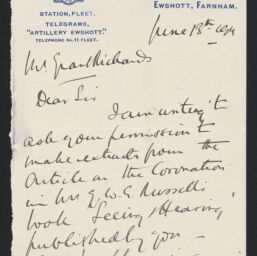 STATION, FLEET.
TELEGRAMS,
"ARTILLERY EWSHOTT."
TELEPHONE No. 11 FLEET.
EWSHOTT, FARNHAM.
June 13th
Mr Grant Richards
Dear Sir
I am writing to
ask your permission to
make extracts from the
Article on the Coronation
in Mr G. W. E. Russell's
book 'Seeing & Hearing'
published by you –